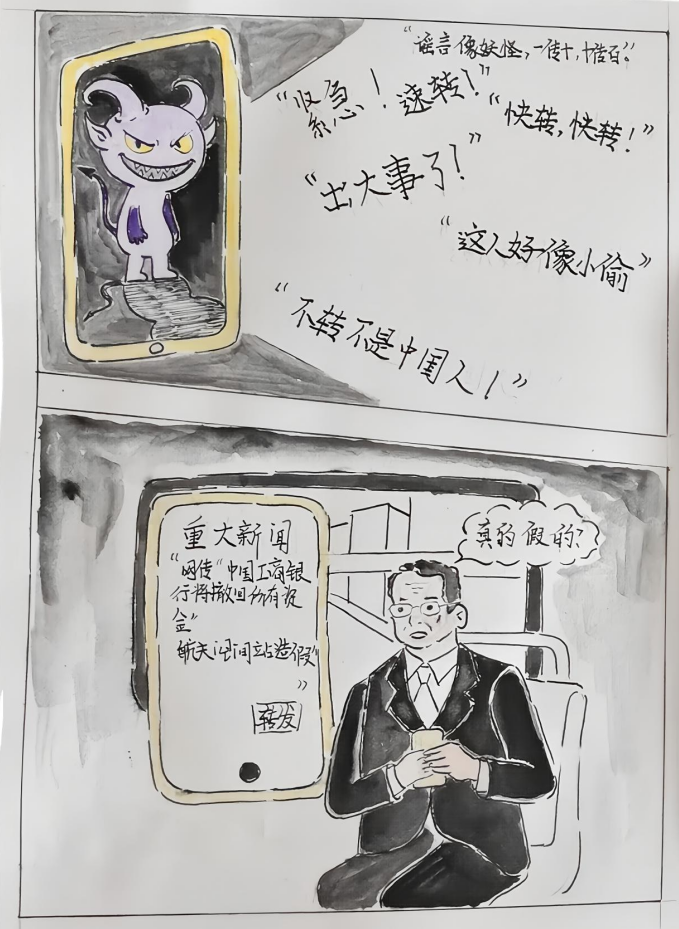 “谣言像妖怪，一传十，十传百。”
“紧急！速转！”
“快转，快转！”
“出大事了！”
“这人好像小偷”
“不转不是中国人！”
真的假的？
重大新闻
“网传“中国工商银
行将撤回所有资
金”
航天空间站造假”
”
转发